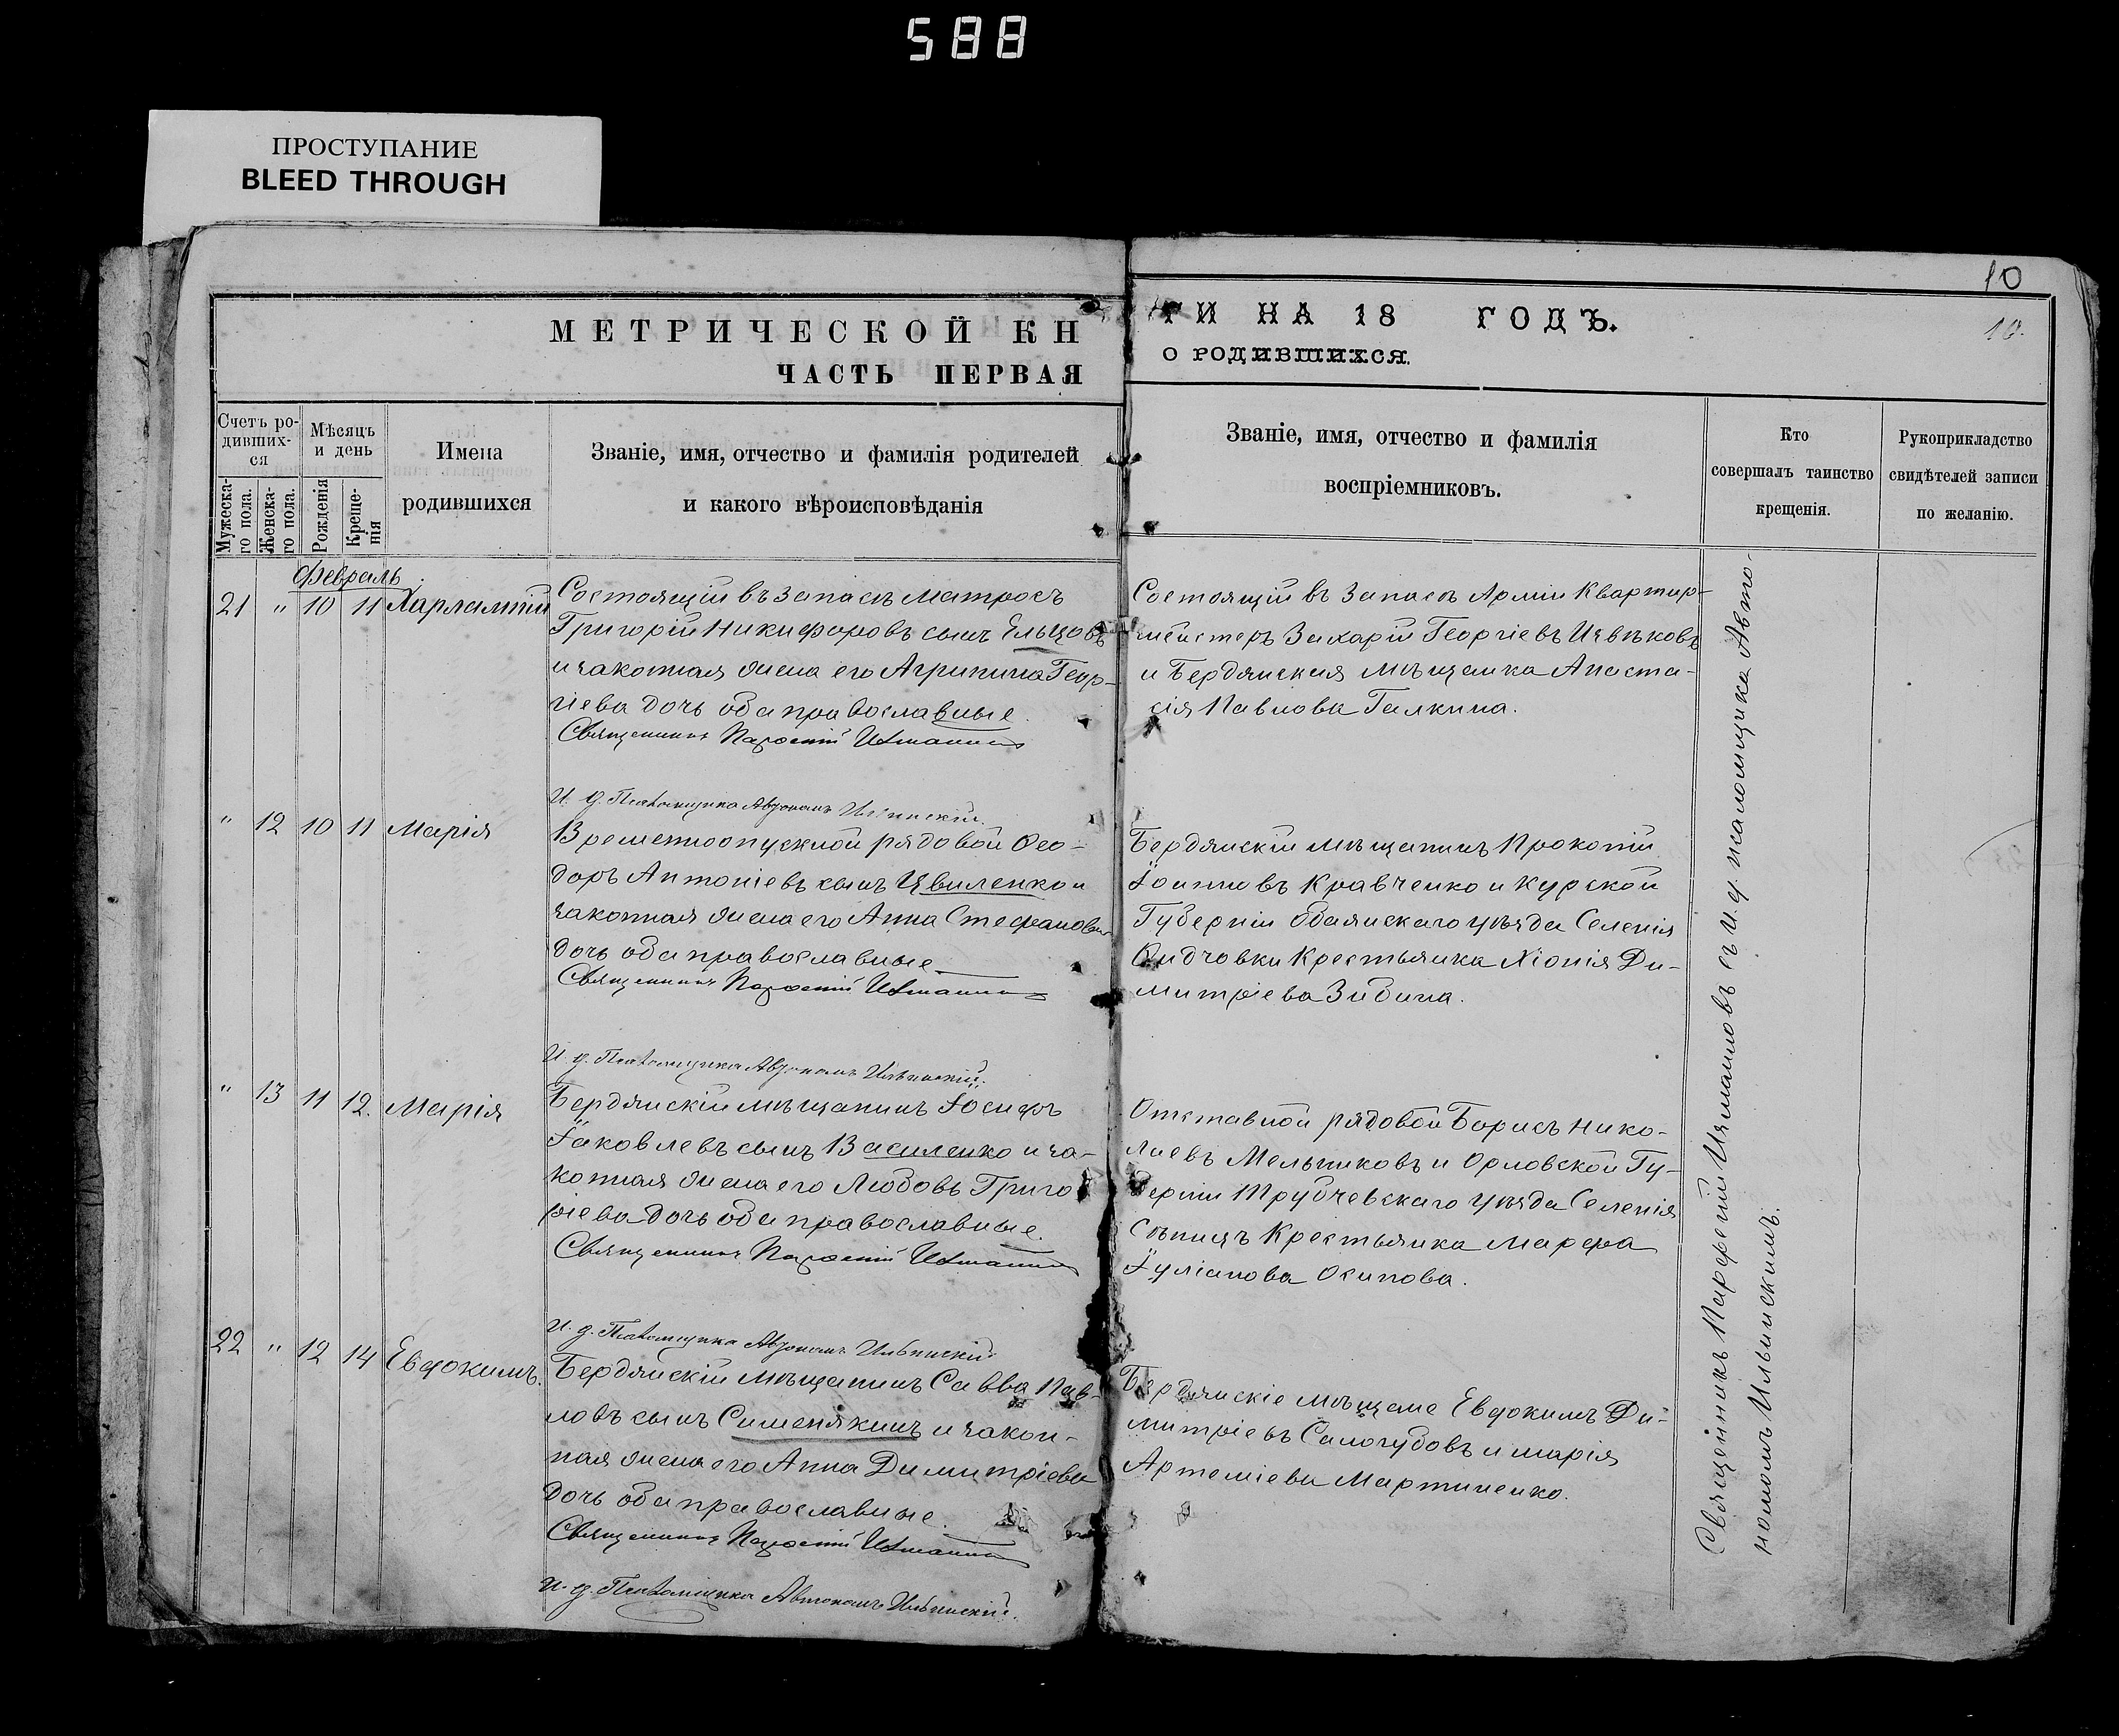 588
ПРОСТУПАНИЕ
BLEED THROUGH
10
10.
МЕТРИЧЕСКОЙ КН
ГИ НА 18 ГОДЪ.
ЧАСТЬ ПЕРВАЯ
О РОДИВШИХСЯ.
Счетъ ро-
дивших-
ся
Мужеска-
го пола.
Женска-
го пола.
Мѣсяцъ
и день
Рожденія
Креще-
нія
Имена
родившихся
Званіе, имя, отчество и фамилія родителей
и какого вѣроисповѣданія
Званіе, имя, отчество и фамилія
воспріемниковъ.
Кто
совершалъ таинство
крещенія.
Рукоприкладство
свидѣтелей записи
по желанію.
Февраль
21 " 10 11 Харлампій
Состоящій въ запасѣ матросъ
Григорій Никифоровъ сынъ Ельцовъ
и законная жена его Агрипина Геор-
гіева дочь оба православные.
Священникъ Парфеній
И. д. Псаломщика Автономъ Ильинскій.
Состоящій въ запасѣ Арміи Квартир-
мейстеръ Захарій Георгіевъ
и Бердянская мѣщанка Анаста-
сія Павлова Галкина.
" 12 10 11 Марія
Временноотпускной рядовой Ѳео-
доръ Антоніевъ сынъ Цвиленко и
законная жена его Анна Стефанова
дочь оба православные
Священникъ Парфеній
И. д. Псаломщика Автономъ Ильинскій.
Бердянскій мѣщанинъ Прокопій
Іоанновъ Кравченко и Курской
Губерніи Обаянскаго уѣзда Селенія
Крестьянка Хіонія Ди-
митріева Зибина.
" 13 11 12. Марія
Бердянскій мѣщанинъ Іосифъ
Іаковлевъ сынъ Василенко и за-
конная жена его Любовь Григо
ріева дочь оба православные.
Священникъ Парфеній
И. д. Псаломщика Автономъ Ильинскій
Отставной рядовой Борисъ Нико-
лаевъ Мельниковъ и Орловской Гу-
берніи Трубчевскаго уѣзда Селенія
Крестьянка Марфа
Іуліанова Осипова.
22 " 12 14 Евдокимъ.
Бердянскій мѣщанинъ Савва Пав-
ловъ сынъ Сименякинъ и закон-
ная жена его Анна Димитріева
дочь оба православные.
Священникъ Парфеній
И. д. Псаломщика Автономъ Ильинскій.
Бердянскіе мѣщане Евдокимъ Ди-
митріевъ Самогудовъ и Марія
Артеміева Мартиненко.
Священникъ Парфеній съ и. д. псаломщика Авто-
номомъ Ильинскимъ.